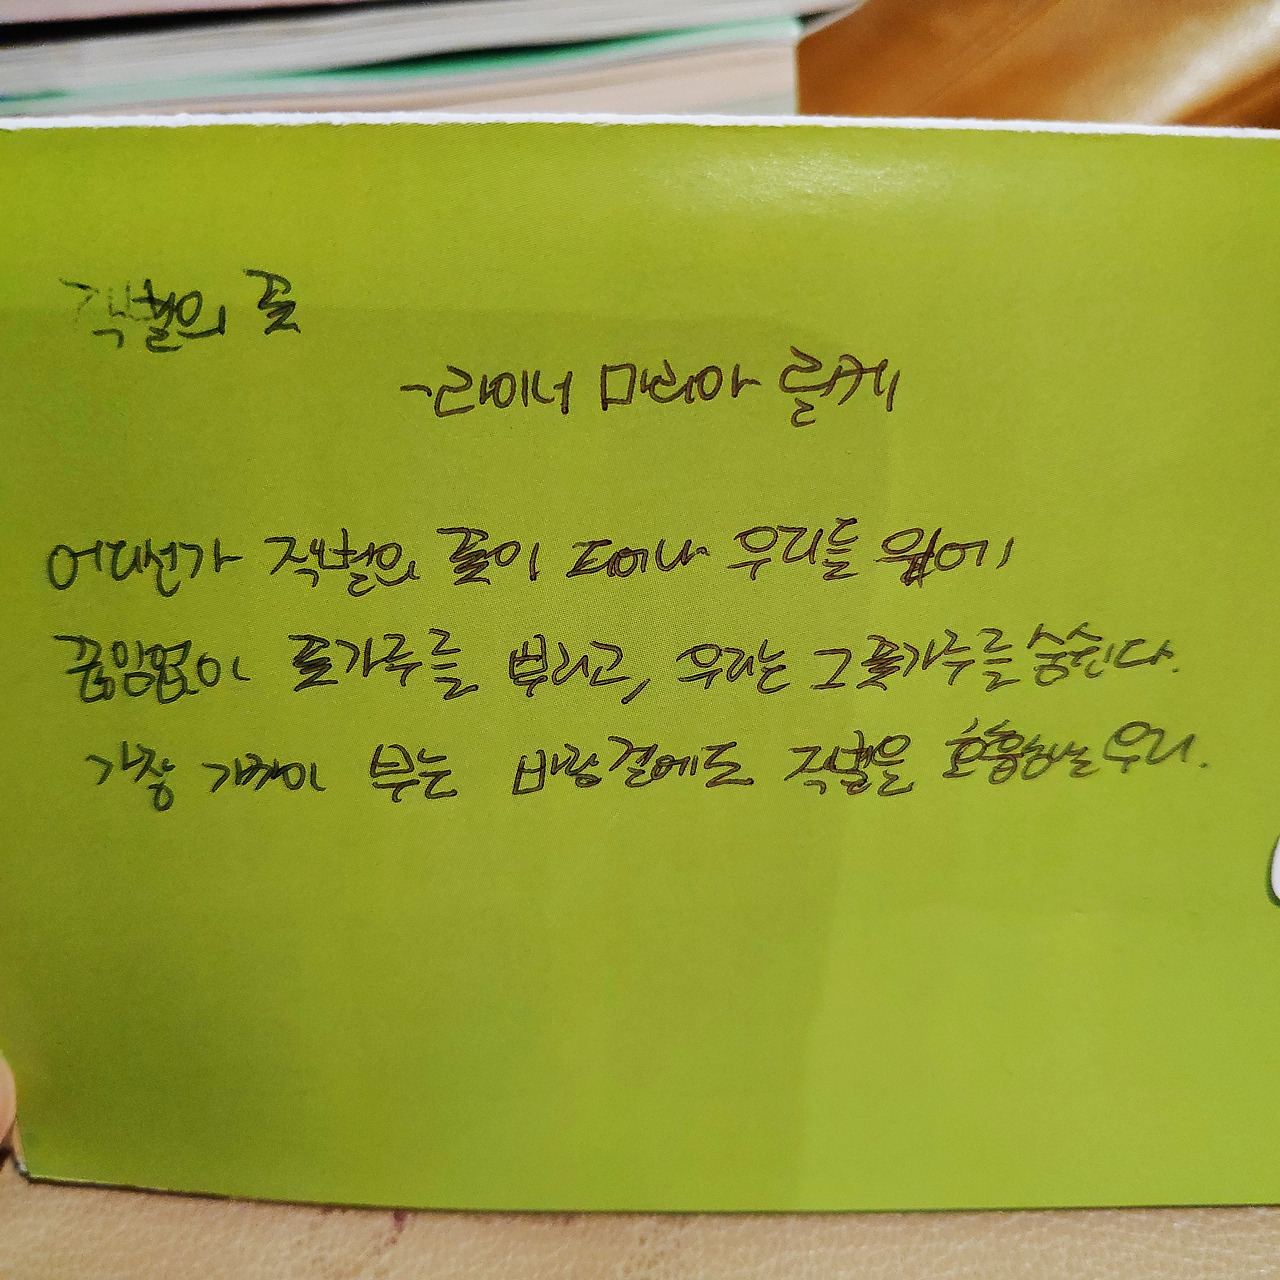 작별의 꽃
-라이너 마리아 릴케
어디선가 작별의 꽃이 피어나 우리들 위에
끊임없이 꽃가루를 뿌리고, 우리는 그 꽃가루를 숨쉰다.
가장 가까이 부는 바람결에도 작별을 호흡하는 우리.